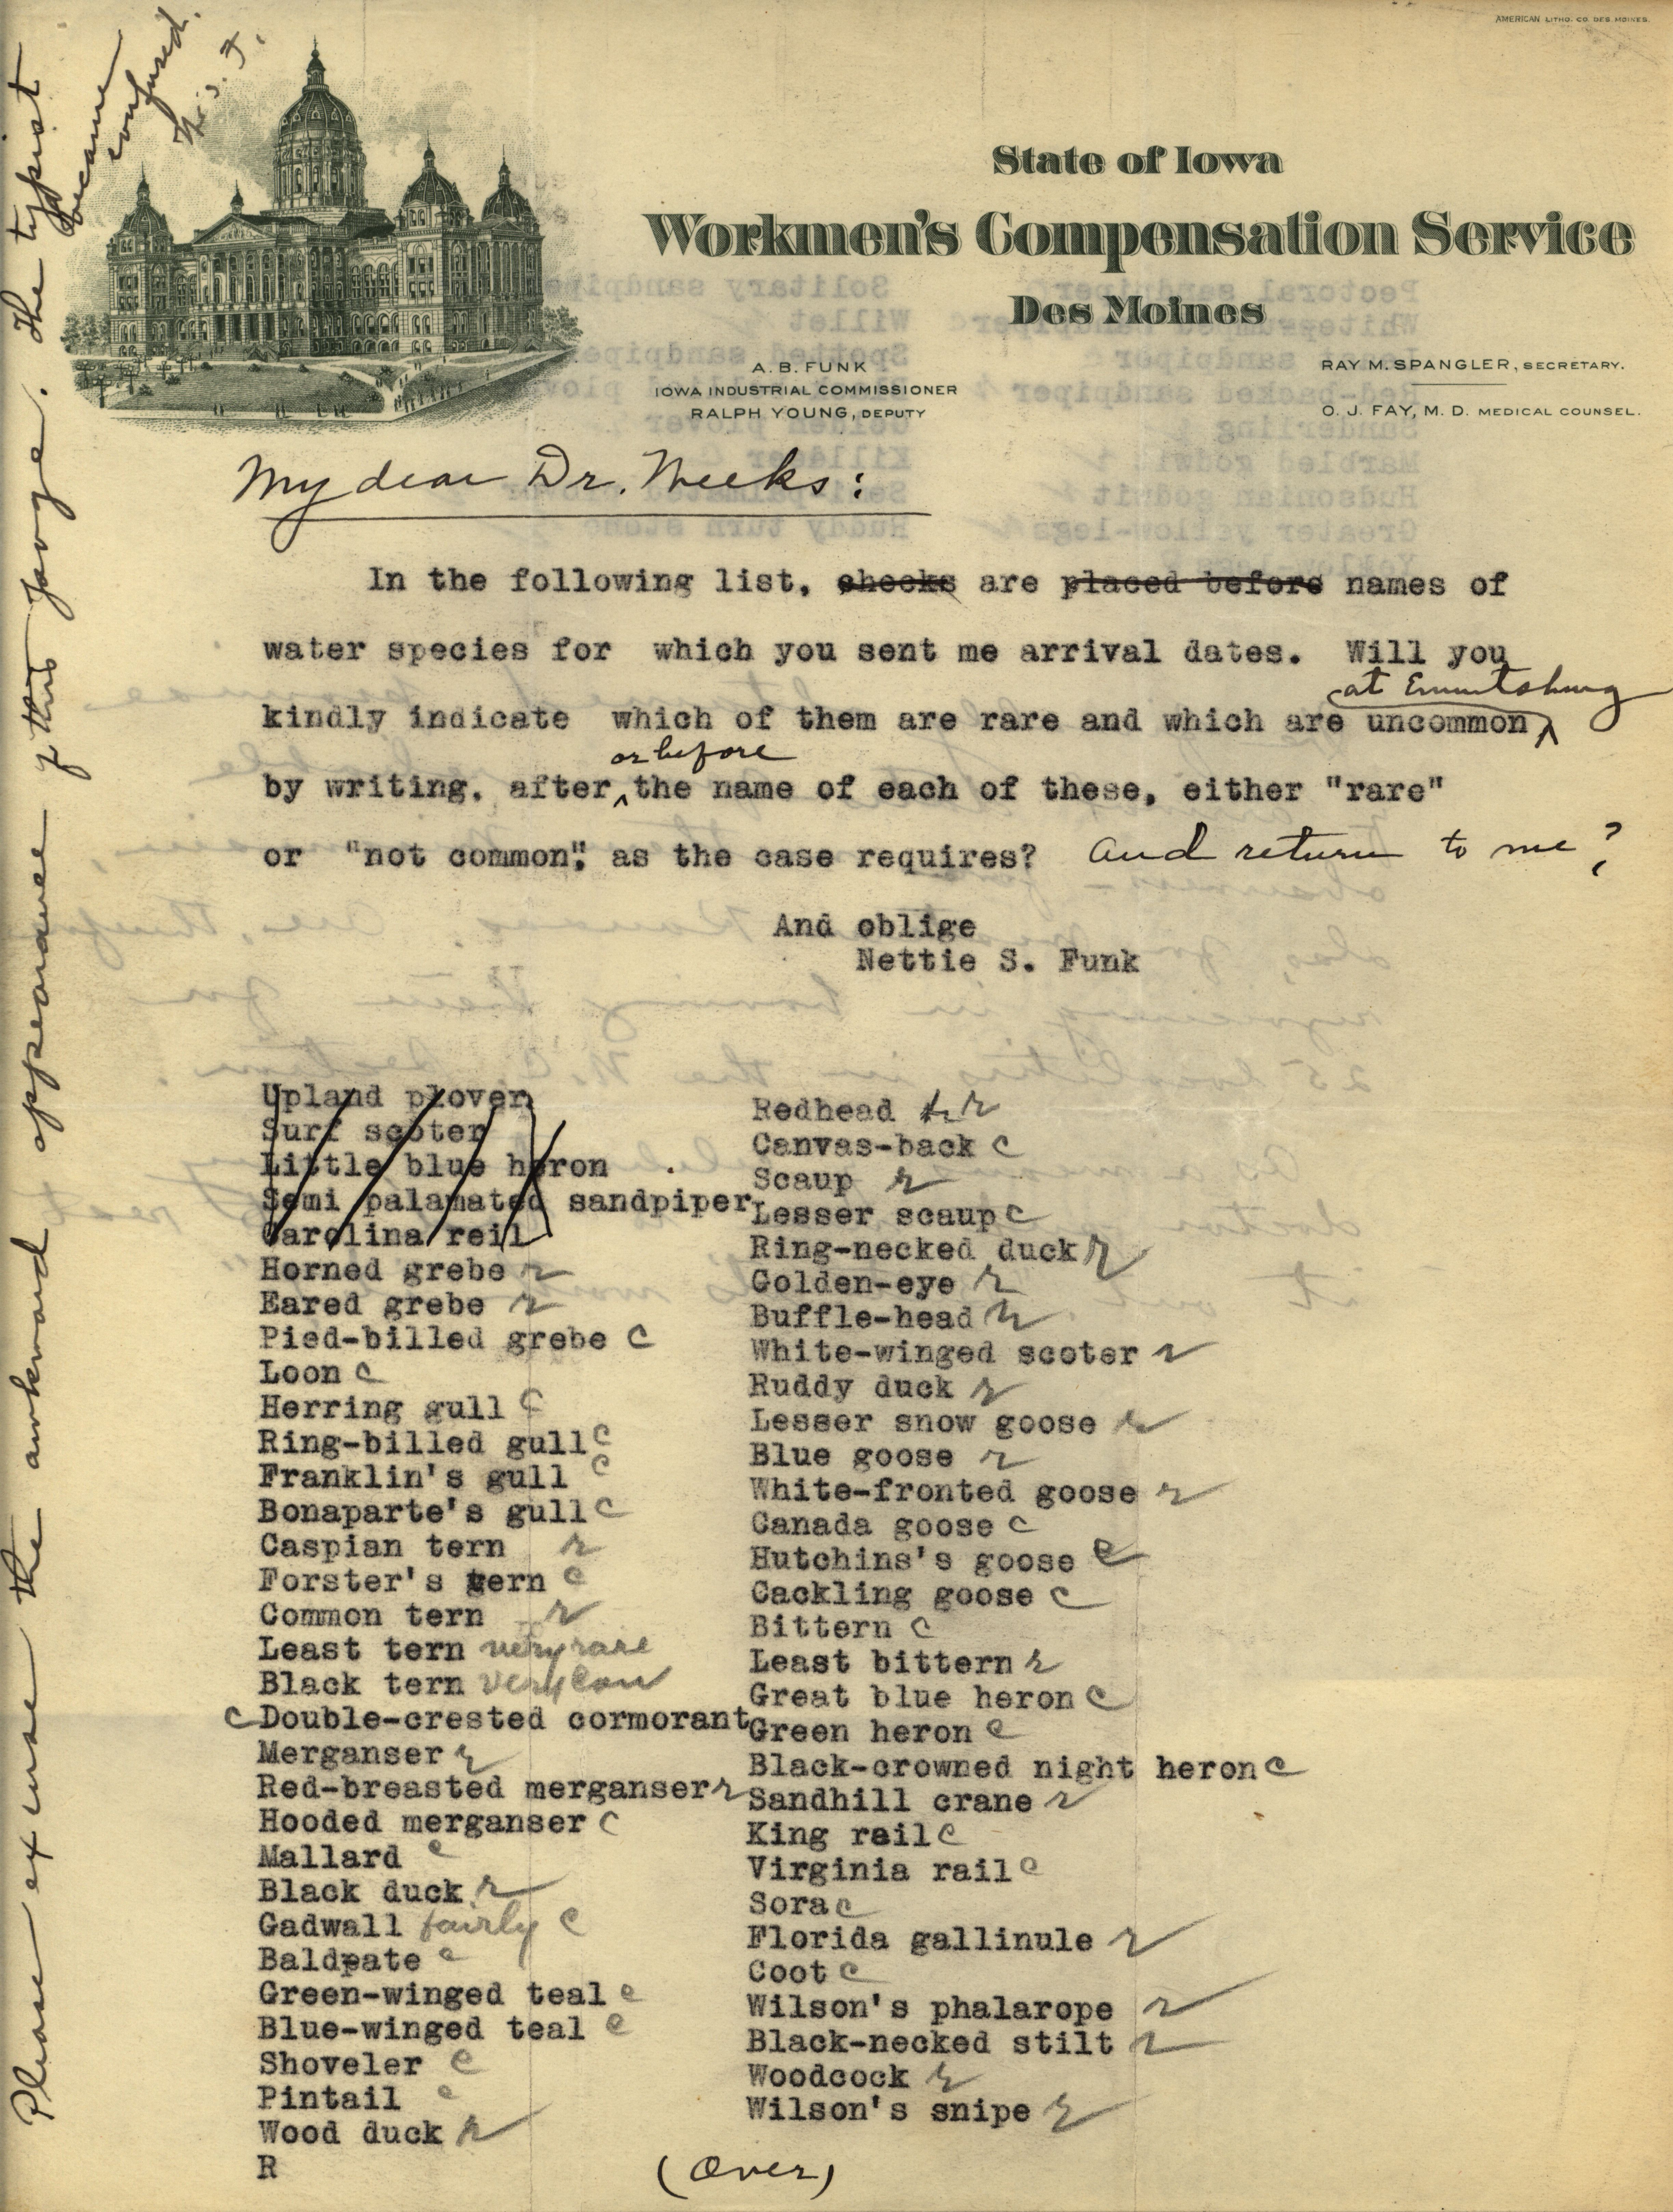 AMERICAN LITHO. CO. DES MOINES.
State of Iowa
Workmen's Compensation Service
Des Moines
A. B. FUNK
IOWA INDUSTRIAL COMMISSIONER
RALPH YOUNG, DEPUTY
RAY M. SPANGLER, SECRETARY.
O. J. FAY, M. D. MEDICAL COUNSEL.
Please excuse the awkward appearance of this page. The typist
became
confused.
N. S. F.
My dear Dr. Weeks:
In the following list, checks are placed before names of
water species for which you sent me arrival dates. Will you
at Emmetsburg
kindly indicate which of them are rare and which are uncommon
or before
by writing, after the name of each of these, either "rare"
or "not common", as the case requires? And return to me?
And oblige
Nettie S. Funk
Upland plover
Surf scoter
Little blue heron
Semi palamated sandpiper
Carolina reil
Horned grebe r
Eared grebe r
Pied-billed grebe c
Loon c
Herring gull c
Ring-billed gull c
Franklin's gull c
Bonaparte's gull c
Caspian tern r
Forster's tern c
Common tern r
Least tern very rare
Black tern very com
c Double-crested cormorant
Merganser r
Red-breasted merganser r
Hooded merganser c
Mallard c
Black duck r
Gadwall fairly c
Baldpate c
Green-winged teal c
Blue-winged teal c
Shoveler c
Pintail c
Wood duck r
R
Redhead r
Canvas-back c
Scaup r
Lesser scaup c
Ring-necked duck r
Golden-eye r
Buffle-head r
White-winged scoter r
Ruddy duck r
Lesser snow goose r
Blue goose r
White-fronted goose r
Canada goose c
Hutchins's goose c
Cackling goose c
Bittern c
Least bittern r
Great blue heron c
Green heron c
Black-crowned night heron c
Sandhill crane r
King rail c
Virginia rail c
Sora c
Florida gallinule r
Coot c
Wilson's phalarope r
Black-necked stilt r
Woodcock r
Wilson's snipe r
(Over)